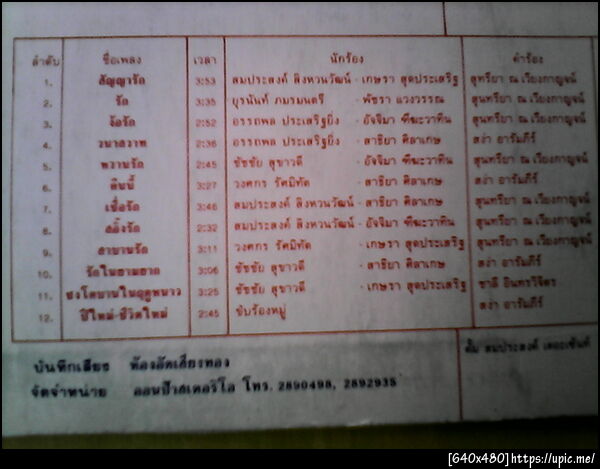 ลำดับ ชื่อเพลง เวลา นักร้อง คำร้อง
1. สัญญารัก 3:53 สมประสงค์ สิงหวนวัฒน์ - เกษรา สุดประเสริฐ สุนทรียา ณ เวียงกาญจน์
2. รัก 3:35 บุรนันท์ ภมรมนตรี - พัชรา แวงวรรณ สุนทรียา ณ เวียงกาญจน์
3. ง้อรัก 2:52 อรรถพล ประเสริฐยิ่ง - อัจจิมา สุนทรียา ณ เวียงกาญจน์
4. วนาสวาท 2:36 อรรถพล ประเสริฐยิ่ง - สาธิยา ศิลาเกษ สง่า อารัมภีร์
5. หวานรัก 2:45 ชัชชัย สุขาวดี - อัจจิมา สุนทรียา ณ เวียงกาญจน์
6. คืนนี้ 3:27 วงศกร รัศมิทัต - สาธิยา ศิลาเกษ สง่า อารัมภีร์
7. เชื่อรัก 3:46 สมประสงค์ สิงหวนวัฒน์ - สาธิยา ศิลาเกษ สุนทรียา ณ เวียงกาญจน์
8. สลิ้งรัก 2:32 สมประสงค์ สิงหวนวัฒน์ - อัจจิมา สุนทรียา ณ เวียงกาญจน์
9. สาบานรัก 3:11 วงศกร รัศมิทัต - เกษรา สุดประเสริฐ สุนทรียา ณ เวียงกาญจน์
10. รักในยามยาก 3:06 ชัชชัย สุขาวดี - สาธิยา ศิลาเกษ สง่า อารัมภีร์
11. ชงโคบานในฤดูหนาว 3:25 ชัชชัย สุขาวดี - เกษรา สุดประเสริฐ ชาลี อินทรวิจิตร
12. ปีใหม่-ชีวิตใหม่ 2:45 ขับร้องหมู่ สง่า อารัมภีร์
บันทึกเสียง ห้องอัดเสียงทอง
จัดจำหน่าย ออนป้าสเตอริโอ โทร. 2890498, 2892935
สมประสงค์
[640x480]https://upic.me/